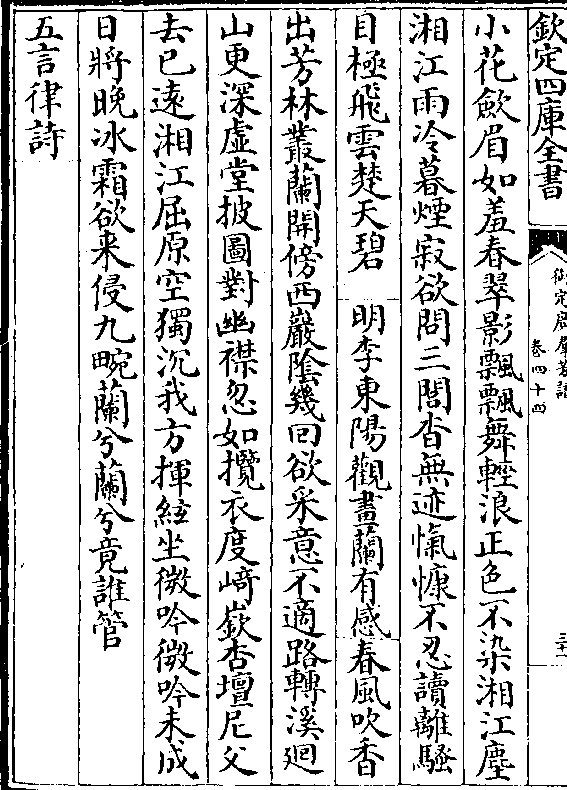 欽定四庫全書
御定廣羣芳譜
卷四十四
三十一
小花斂眉如羞春翠影飄飄舞輕浪正色不染湘江塵
湘江雨冷暮煙寂欲問三閭杳無迹愾慷不忍讀離騷
目極飛雲楚天碧　明李東陽觀畫蘭有感春風吹香
出芳林叢蘭開傍西巖陰幾回欲采意不適路轉溪迴
山更深虚堂披圖對幽襟忽如攬衣度﨑嶔杏壇尼父
去已遠湘江屈原空獨沉我方揮絃坐微吟微吟未成
日將晚冰霜欲来侵九畹蘭兮蘭兮竟誰管
五言律詩